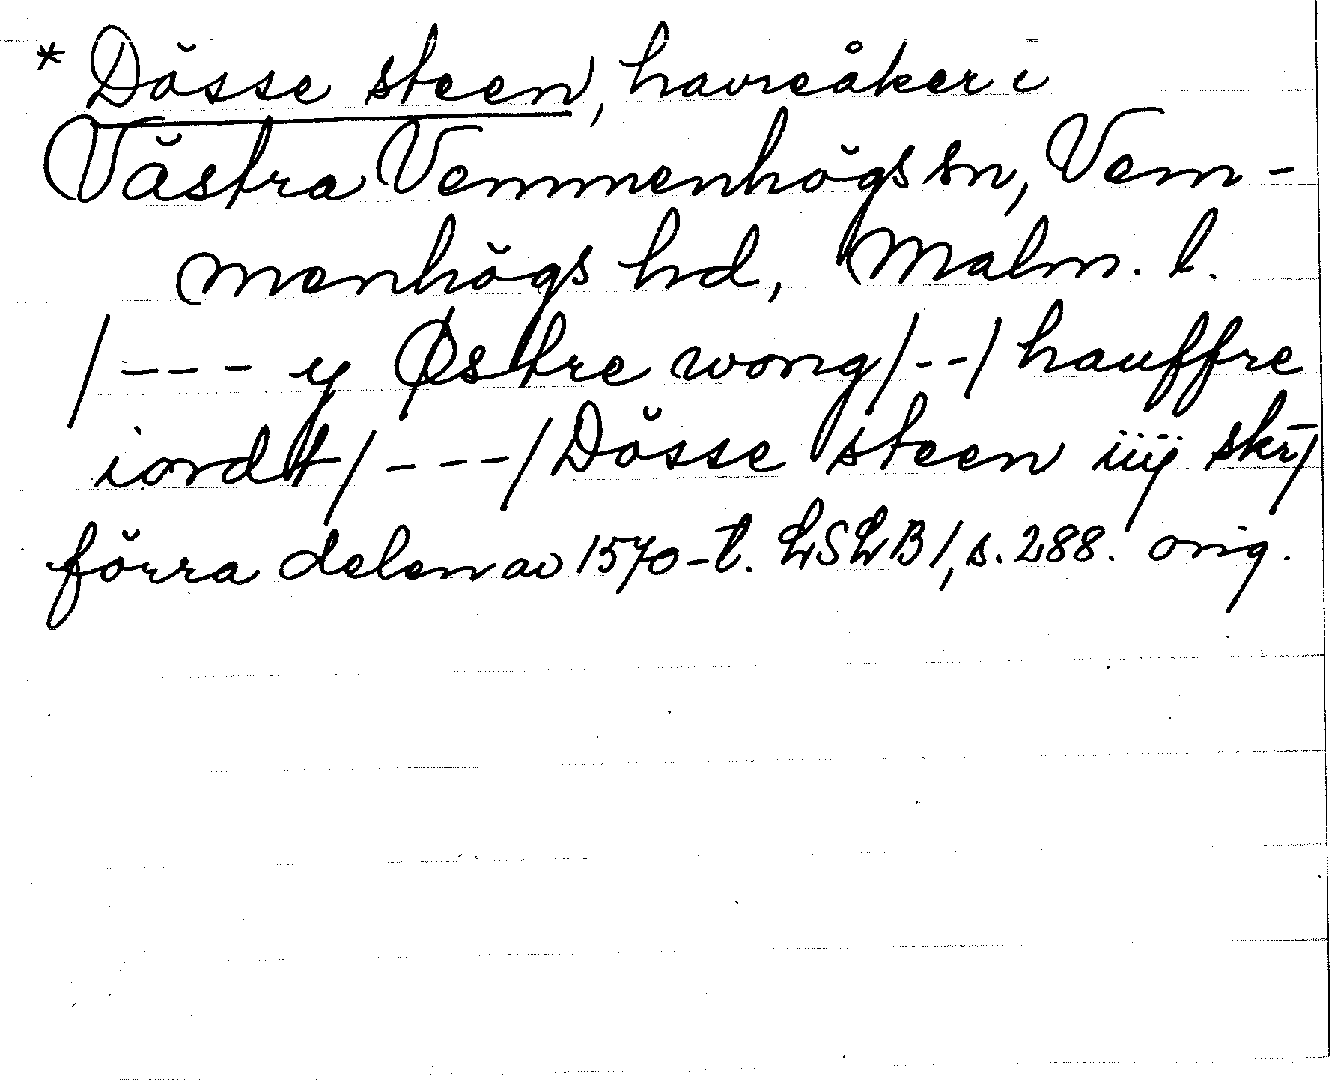 * Dösse steen, havreåker i
Västra Vemmenhögs sn, Vem-
menhögs hd, Malm. l.
/--- y Østre wong/--/ hauffre
iordt/---/ Dösse steen iiij skr/
förra delen av 1570-t. LSLB 1, s. 288. orig.